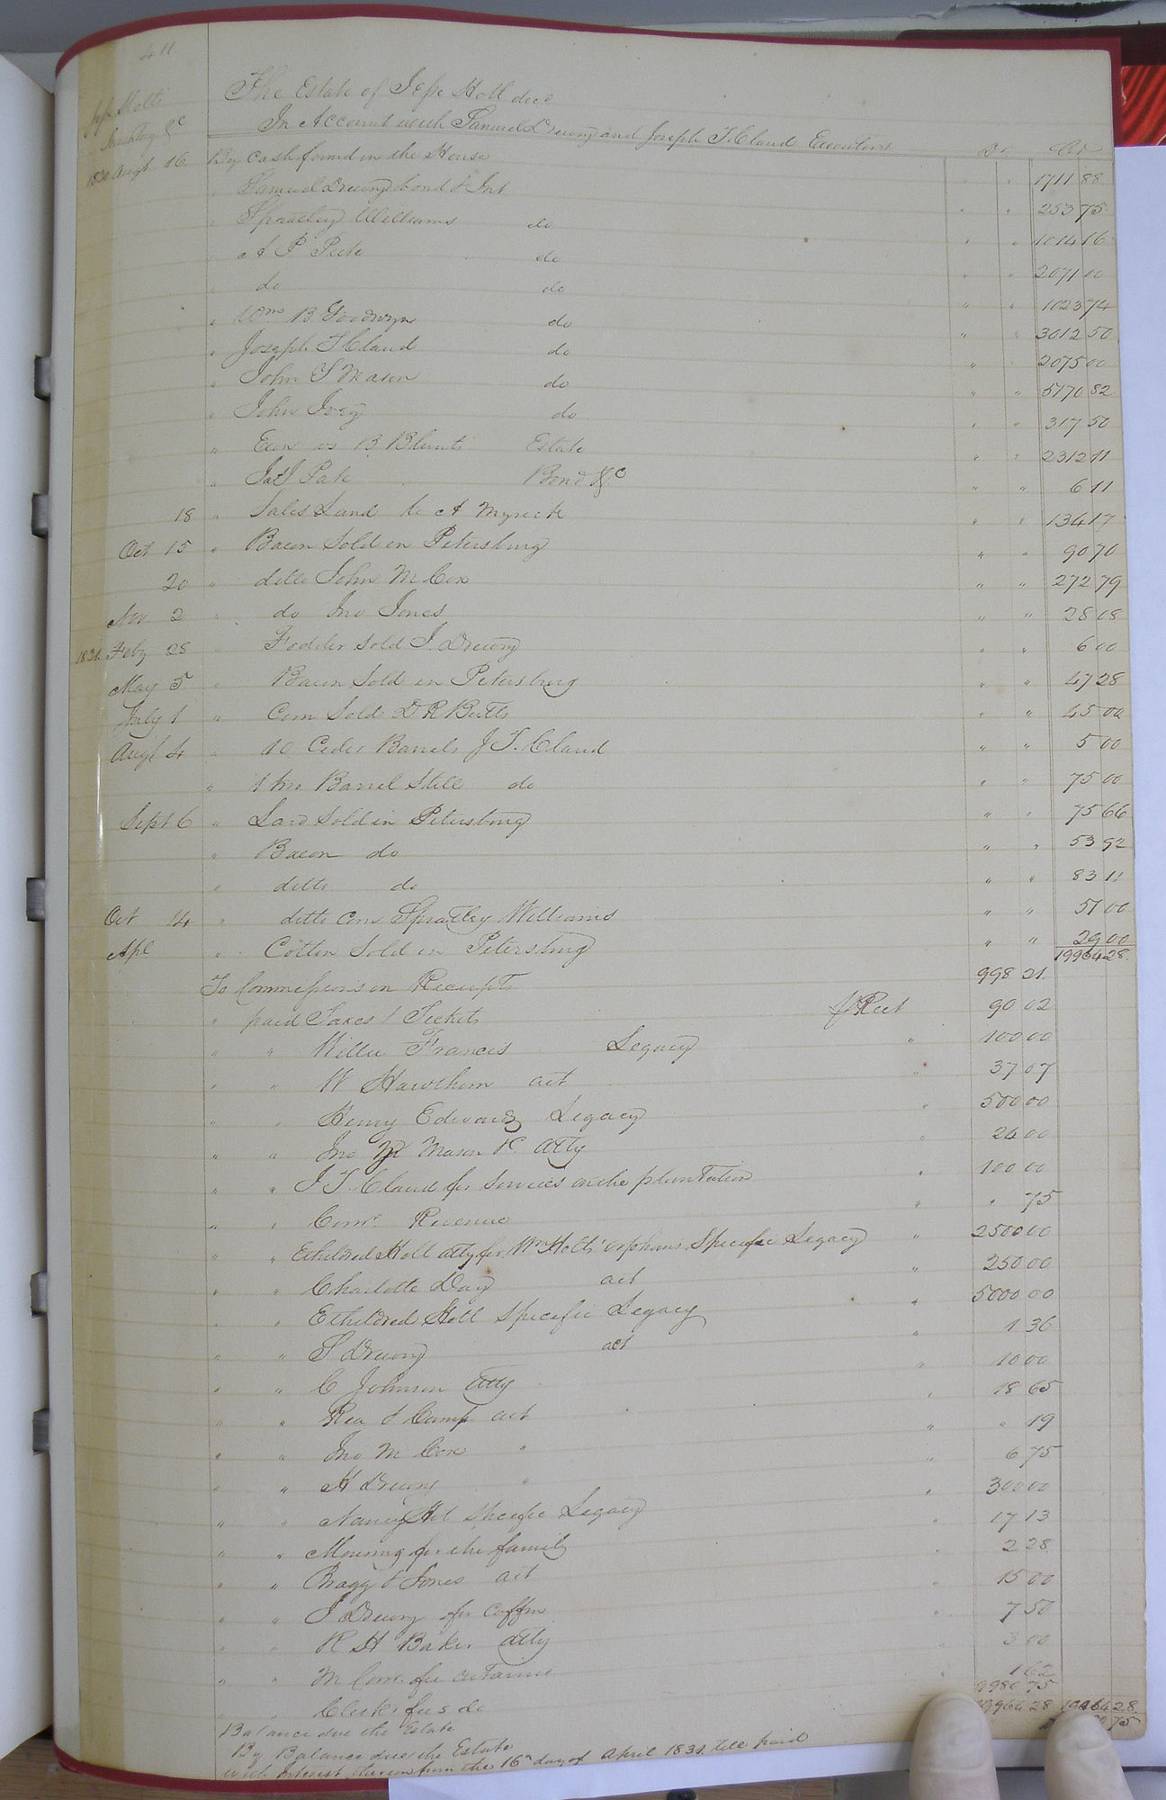 411
The Estate of Jesse Holt decd
In Account with Samuel Drewry and Joseph T. Claud Executors Dr Cr
1830 Augt 16 By Cash found in the House 1711 88
" Samuel Drewry bond & Int 253 75
" Spratley Williams do 1014 16
" A P Peete do 2071 00
" do do 1023 74
" Wm B. Goodwyn do 3012 50
" Joseph T Claud do 2075 00
" John S Mason do 5170 82
" John Ivey do 317 50
" Exn vs B Blunts Estate 2312 11
" Pate Bond &c 6 11
18 " Sales Land to A Myrick 134 17
Oct 15 " Bacon Sold in Petersburg 90 70
20 " ditto John M Cox 272 79
Nov 2 " do Jno Jones 28 08
1831 Feby 28 " Fodder sold J. Drewry 6 00
May 5 " Bacon Sold in Petersburg 47 28
July 1 " Corn Sold D R Butts 45 00
Augt 4 " 10 Cider Barrels J T. Claud 5 00
" 1 Barrel Still do 75 00
Sept 6 " Lard Sold in Petersburg 75 66
" Bacon do 53 92
" ditto do 83 11
Oct 14 " ditto Spratley Williams 51 00
Apl " Cotton Sold in Petersburg 29 00
19964 28
To Commissions on Receipts 998 21
" paid Taxes / Tickets pr Rect 90 02
" " Willie Francis Legacy " 100 00
" " W Hawthorn act " 37 07
" " Henry Edwards Legacy " 500 00
" " Jno Mason Atty " 24 00
" " J T. Claud for services on the plantation " 100 00
" " Comr Revenue " " 75
" " Etheldred Holt atty for Wm Holts' orphans Specific Legacy " 2500 00
" " Charlotte Day act " 250 00
" " Etheldred Holt Specific Legacy " 5000 00
" " S Drewry act " 1 36
" " C Johnson Atty " 10 00
" " Rea & Camp act " 18 65
" " Jno M Cox " " " 19
" " H Drewry " " 6 75
" " Nancy Holt Specific Legacy " 300 00
" " Mourning for the family " 17 13
" " Bragg & Jones act " 2 28
" " J Drewry for Coffin " 15 00
" " R H Baker Atty " 7 50
" " Comr fee 3 00
" " Clerks fees do 1 62
Balance due the Estate 9980 75
19964 28 19964 28
By Balance due the Estate 75
with Interest thereon from the 16th day of April 1831 till paid